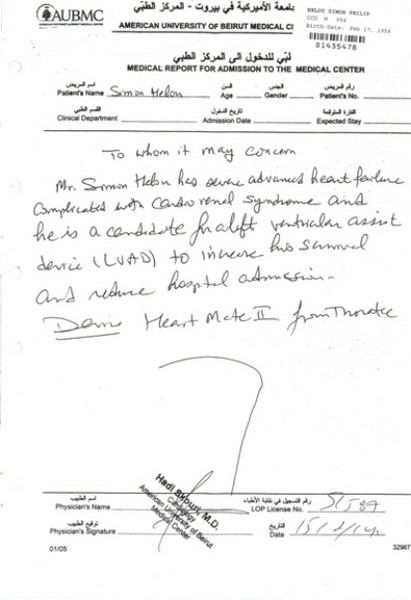 AUBMC
الجامعة الأميركية في بيروت - المركز الطبّي
AMERICAN UNIVERSITY OF BEIRUT MEDICAL CE
HELOU SIMON PHILIP
CCU M 056
Birth-Date: Feb 17, 1958
01435478
طبّي للدخول الى المركز الطبي
MEDICAL REPORT FOR ADMISSION TO THE MEDICAL CENTER
اسم المريض السن الجنس رقم المريض
Patient's Name Simon Helou Age Gender Patient's No.
القسم الطبي تاريخ الدخول الفترة المتوقعة
Clinical Department Admission Date Expected Stay
To whom it may concern
Mr. Simon Helou has severe advanced heart failure
complicated with cardiorenal syndrome and
he is a candidate for a left ventricular assist
device (LVAD) to increase his survival
and reduce hospital admission.
Heart Mate II from Thoratec
Hadi Skouri, M.D.
Cardiology
American University of Beirut
Medical Center
اسم الطبيب رقم التسجيل في نقابة الأطباء
Physician's Name LOP License No.
توقيع الطبيب التاريخ
Physician's Signature Date
01/05 32967